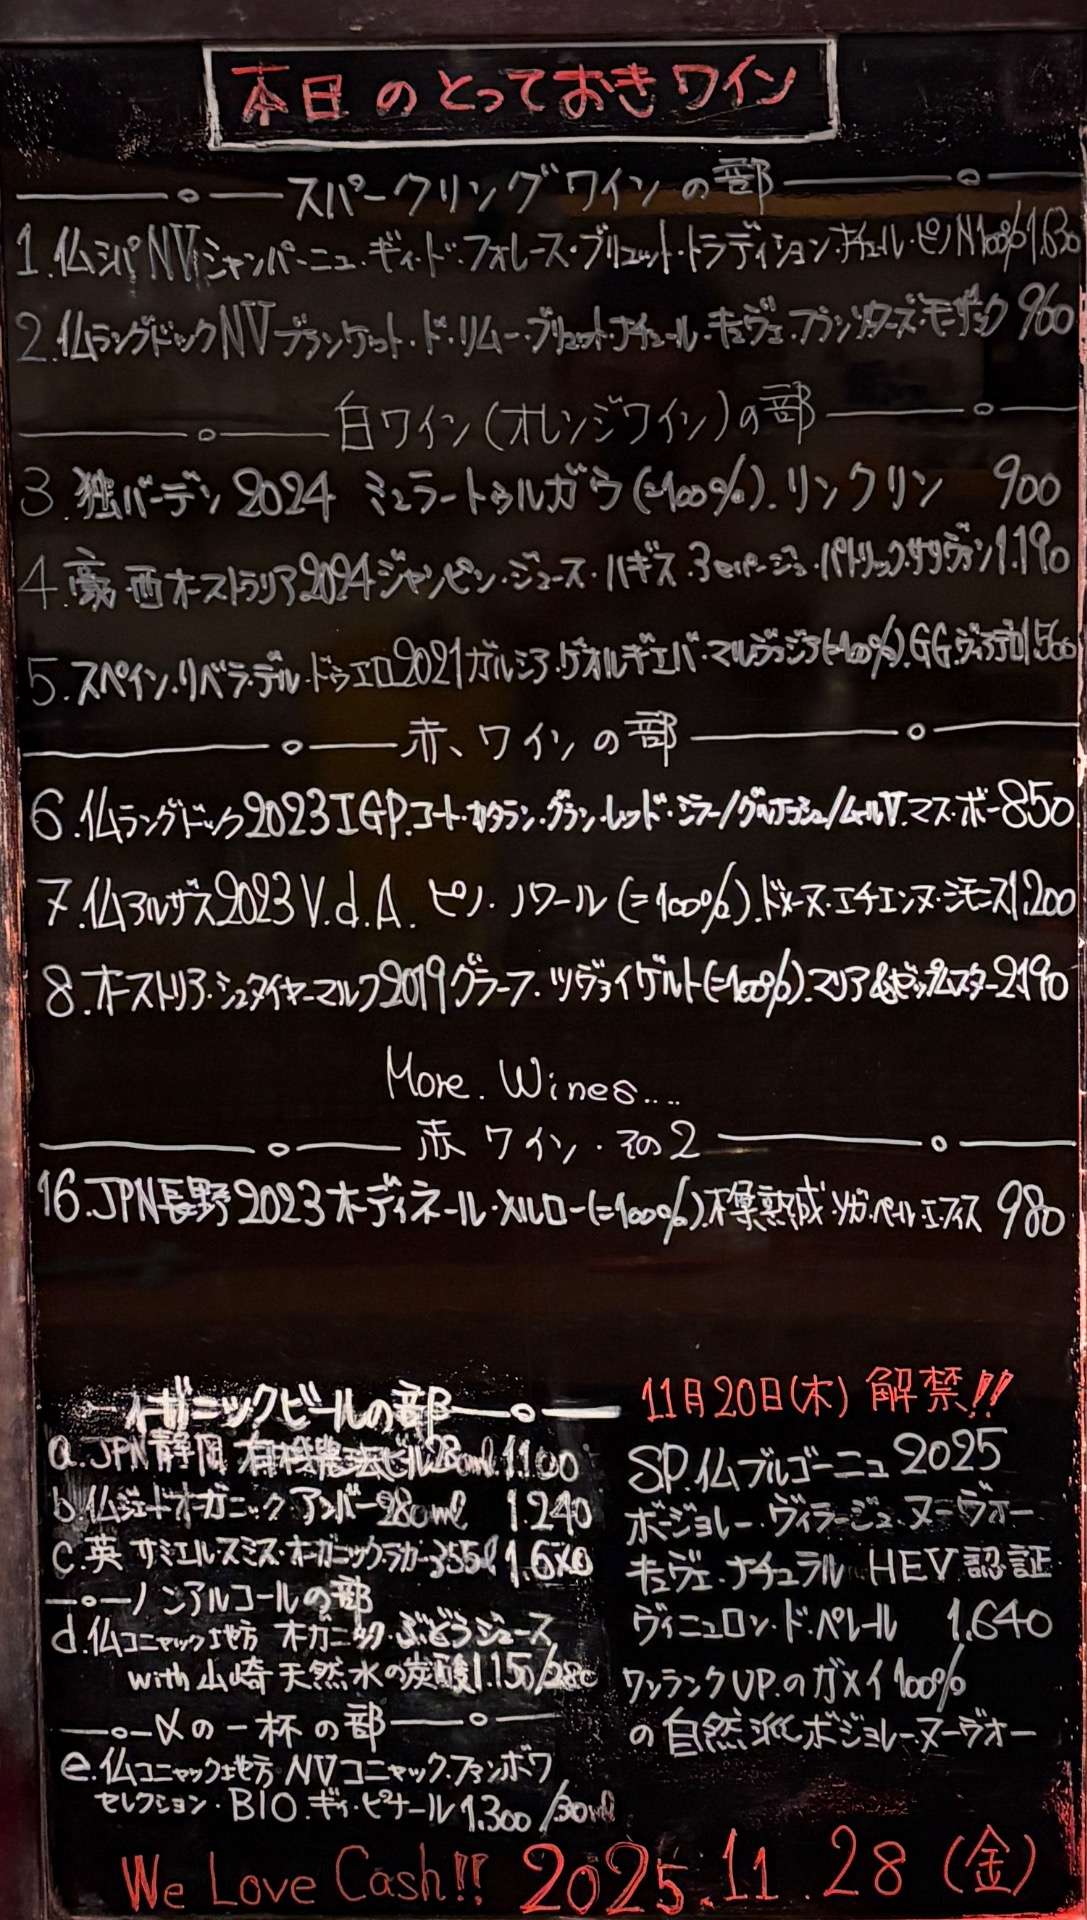 本日のとっておきワイン
スパークリングワインの部
1.仏シパNVシャンパーニュ・ギィ・ド・フォレース・ブリュット・トラディション・ナチュール・ピノN100%1,630
2.仏ラングドックNVブランケット・ド・リムー・ブリュット・ナチュール・キュヴェ・フランソワーズ・モーザック 960
白ワイン(オレンジワイン)の部
3.独バーデン2024 ミュラートゥルガウ(=100%).リンクリン 900
4.豪・西オーストラリア2024ジャンピン・ジュース・ハギス・3セパージュ・パトリック・サリヴァン1.190
5.スペイン・リベラ・デル・ドゥエロ2021ガルシア・ゲオルギエバ・マルヴァジア(=100%).GG.ヴィラデロ1,560
赤ワインの部
6.仏ラングドック2023IGP.コート・カタラン・グラン・レッド・シラー/グルナッシュ/ムールV.マス・ボー850
7.仏アルザス2023V.d.A. ピノ・ノワール(=100%).ドメーヌ・エチエンヌ・シモニス1,200
8.オーストリア・シュタイヤーマルク2019グラーフ・ツヴァイゲルト(=100%).マリア&ゼップムスター2190
More. Wines....
赤ワイン・その2
16.JPN長野2023オーディネール・メルロー(=100%).木樽熟成・ソガ・ペール・エ・フィス 980
オーガニックビールの部
a.JPN静岡 有機農法ビール280ml.1100
b.仏ジェードオーガニック アンバー280ml 1.240
c.英 サミエルスミス・オーガニックラガー355ml 1.6
ノンアルコールの部
d.仏コニャック地方 オーガニック・ぶどうジュース
with山崎天然水の炭酸1.150/280
〆の一杯の部
e.仏コニャック地方NVコニャック・ファンボワ
セレクション・BIO.ギィ・ピナール1.300/30ml
11月20日(木)解禁!!
SP.仏ブルゴーニュ2025
ボージョレー・ヴィラージュ・ヌーヴォー
キュヴェ・ナチュラル HEV認証
ヴィニュロン・ド・ペレール 1.640
ワンランクUP.のガメイ100%
の自然派ボジョレーヌーヴォー
We Love Cash!! 2025.11.28(金)